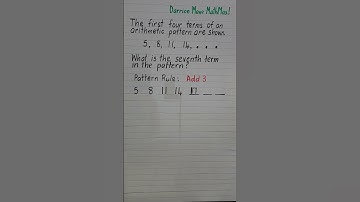 Darrion Maur MathMax!
The first four terms of an
arithmetic pattern are shown.
5, 8, 11, 14, . . .
What is the seventh term
in the pattern?
Pattern Rule: Add 3
5 8 11 14 17 _ _